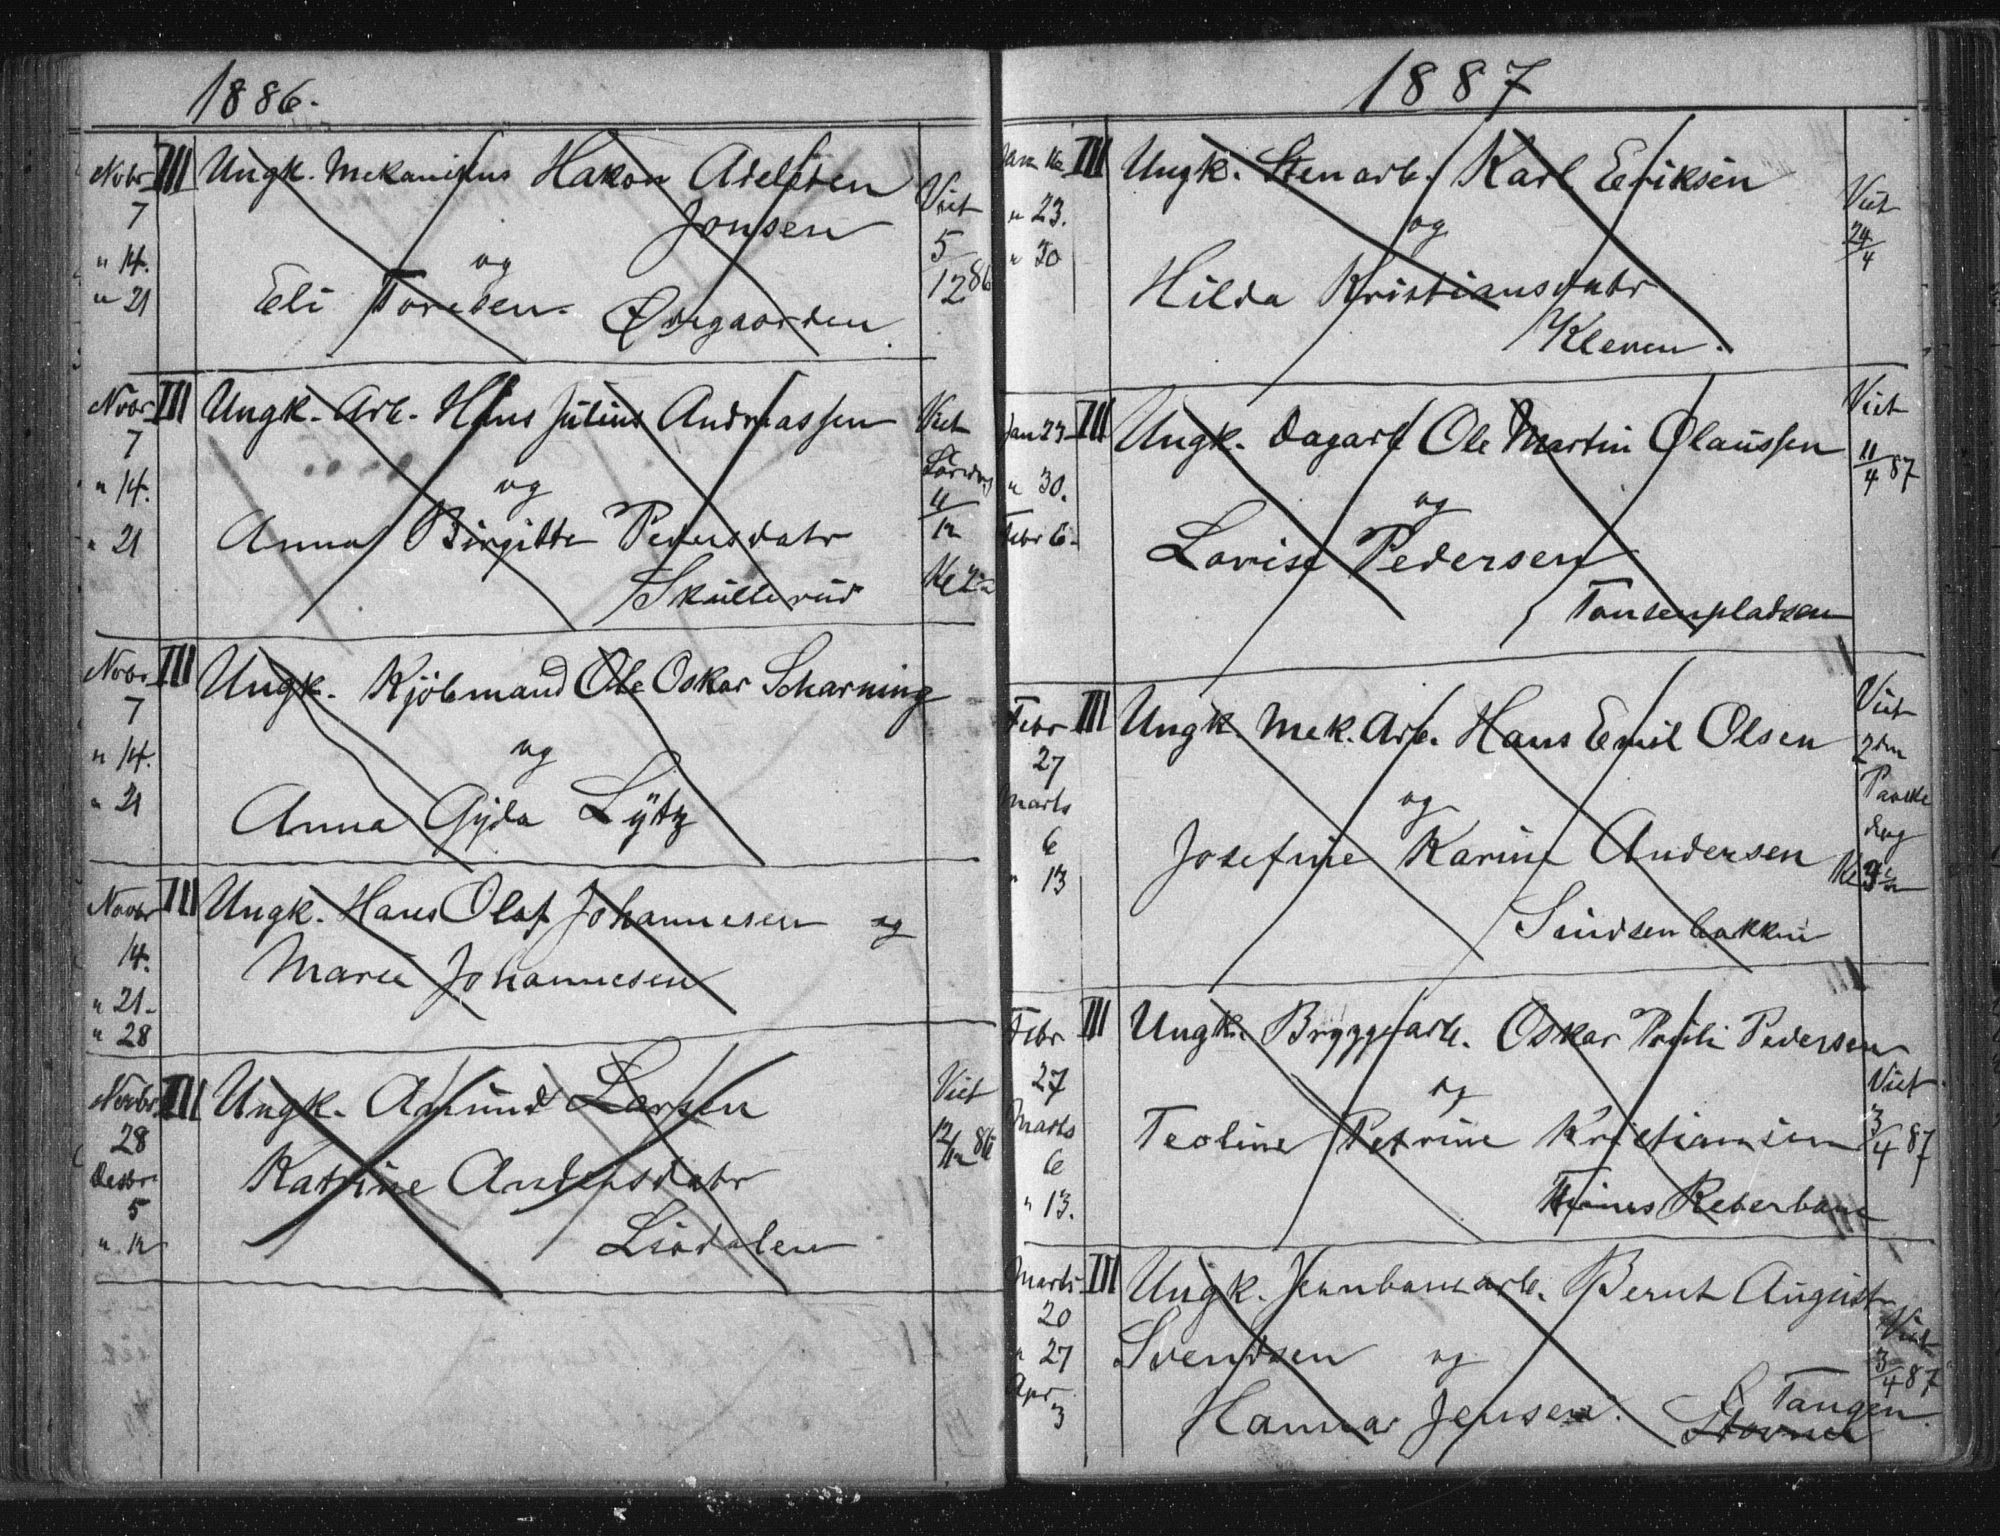 1886.
Novbr III Ungk. Mekanikus Hakon Adelsten
7 Jonsen Viet
" 14. og 5
" 21 Eli Toresen. Ødegaarden. 12 86
Novbr III Ungk. Arb. Hans Julius Andreassen Viet
7 Lørdag
" 14. og 11
" 21 Anna Birgitte Pedersdatr 12
Skullerud Kl
Novbr III Ungk. Kjöbmand Ole Oskar Scharning
7
" 14. og
" 21 Anna Gyda Lytz
Novbr III Ungk. Hans Olaf Johannesen og
14. Marie Johannesen
" 21.
" 28
Novbr III Ungk. Amund Larsen Viet
28 12/12 86
Decbr Katrine Andersdatr
5
" 12 Lisdalen
1887
Jan 16 III Ungk. Stenarb. Karl Eriksen Viet
" 23. og 24/4
" 30 Hilda Kristiansdatr
Kleven.
Jan 23 III Ungk. Dagarb Ole Martin Olaussen Viet
" 30. og 11/4 87
Febr 6. Lovise Pedersen
Tonsenpladsen
Febr III Ungk. Mek. Arb. Hans Emil Olsen Viet
27 2den
Marts og Paaske
6 Josefine Karine Andersen dag
" 13 Sinsenbakken Kl
Febr III Ungk. Bryggearb. Oskar Pauli Pedersen
27 og Viet
Marts Teoline Petrine Kristiansen 3/4 87
6
" 13. Reberbane
Marts III Ungk. Jernbanearb. Bernt August
20 Svendsen og Viet
" 27 3/4 87
Apr Tangen.
3 Hanna Jensen. Stovner